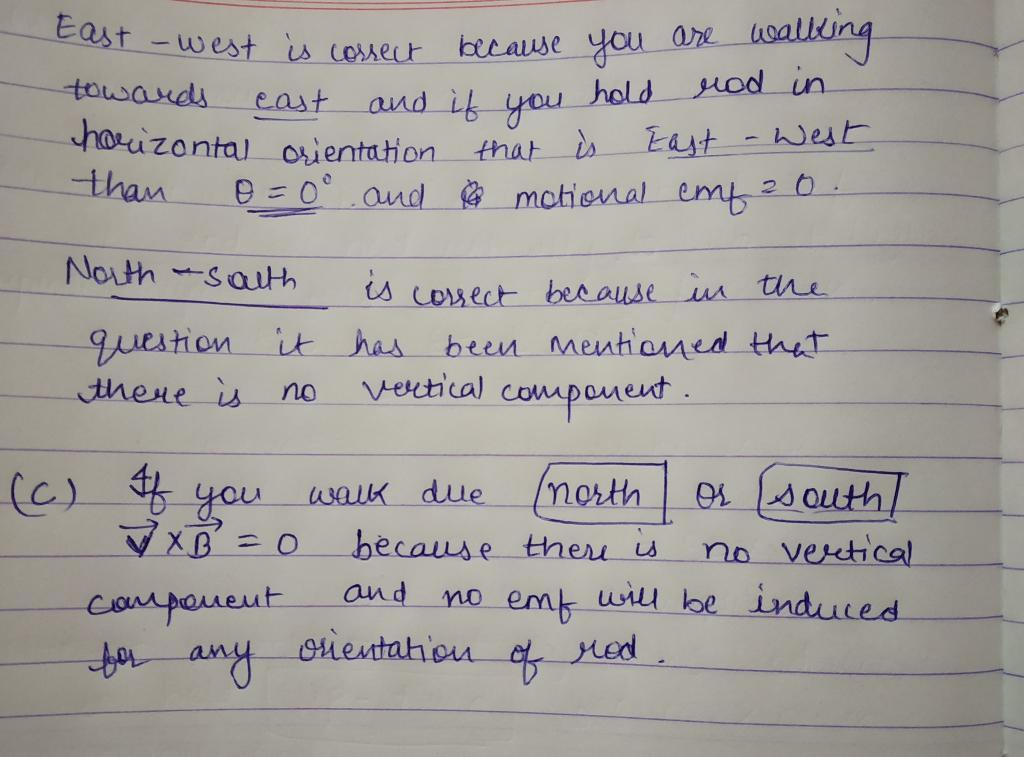 East - west is correct because you are walking
towards east and if you hold rod in
horizontal orientation that is East - West
than θ = 0° . and motional emf = 0 .
North - South is correct because in the
question it has been mentioned that
there is no vertical component .
(C) If you walk due north or south
V⃗ × B⃗ = 0 because there is no vertical
component and no emf will be induced
for any orientation of rod .